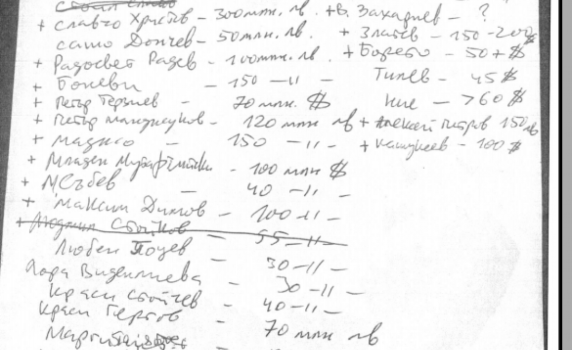 + Славчо Христов - 300 млн. лв. + В. Захариев - ?
само Дончев - 50 млн. лв. + Златев - 150-200 $
+ Радосвет Радев - 100 млн. лв + Борето - 50 + $
+ Боневи - 150 -11- Тилев - 45 $
+ Петър Терзиев - 70 млн. $ Ние - >60 $
+ Петър Манджуков - 120 млн лв + Алексей Петров 150 лв
+ Маджо - 150 -11- + - 100 $
+ Младен Мутафчийски - 100 млн $
+ - 40 -11-
+ Максим Димов - 100 -11-
+ Людмил Стойков - 55 -11-
Любен - 30 -11-
Лора Виденлиева - 30 -11-
Краси Стойчев - 40 -11-
Краси Гергов - 70 млн лв